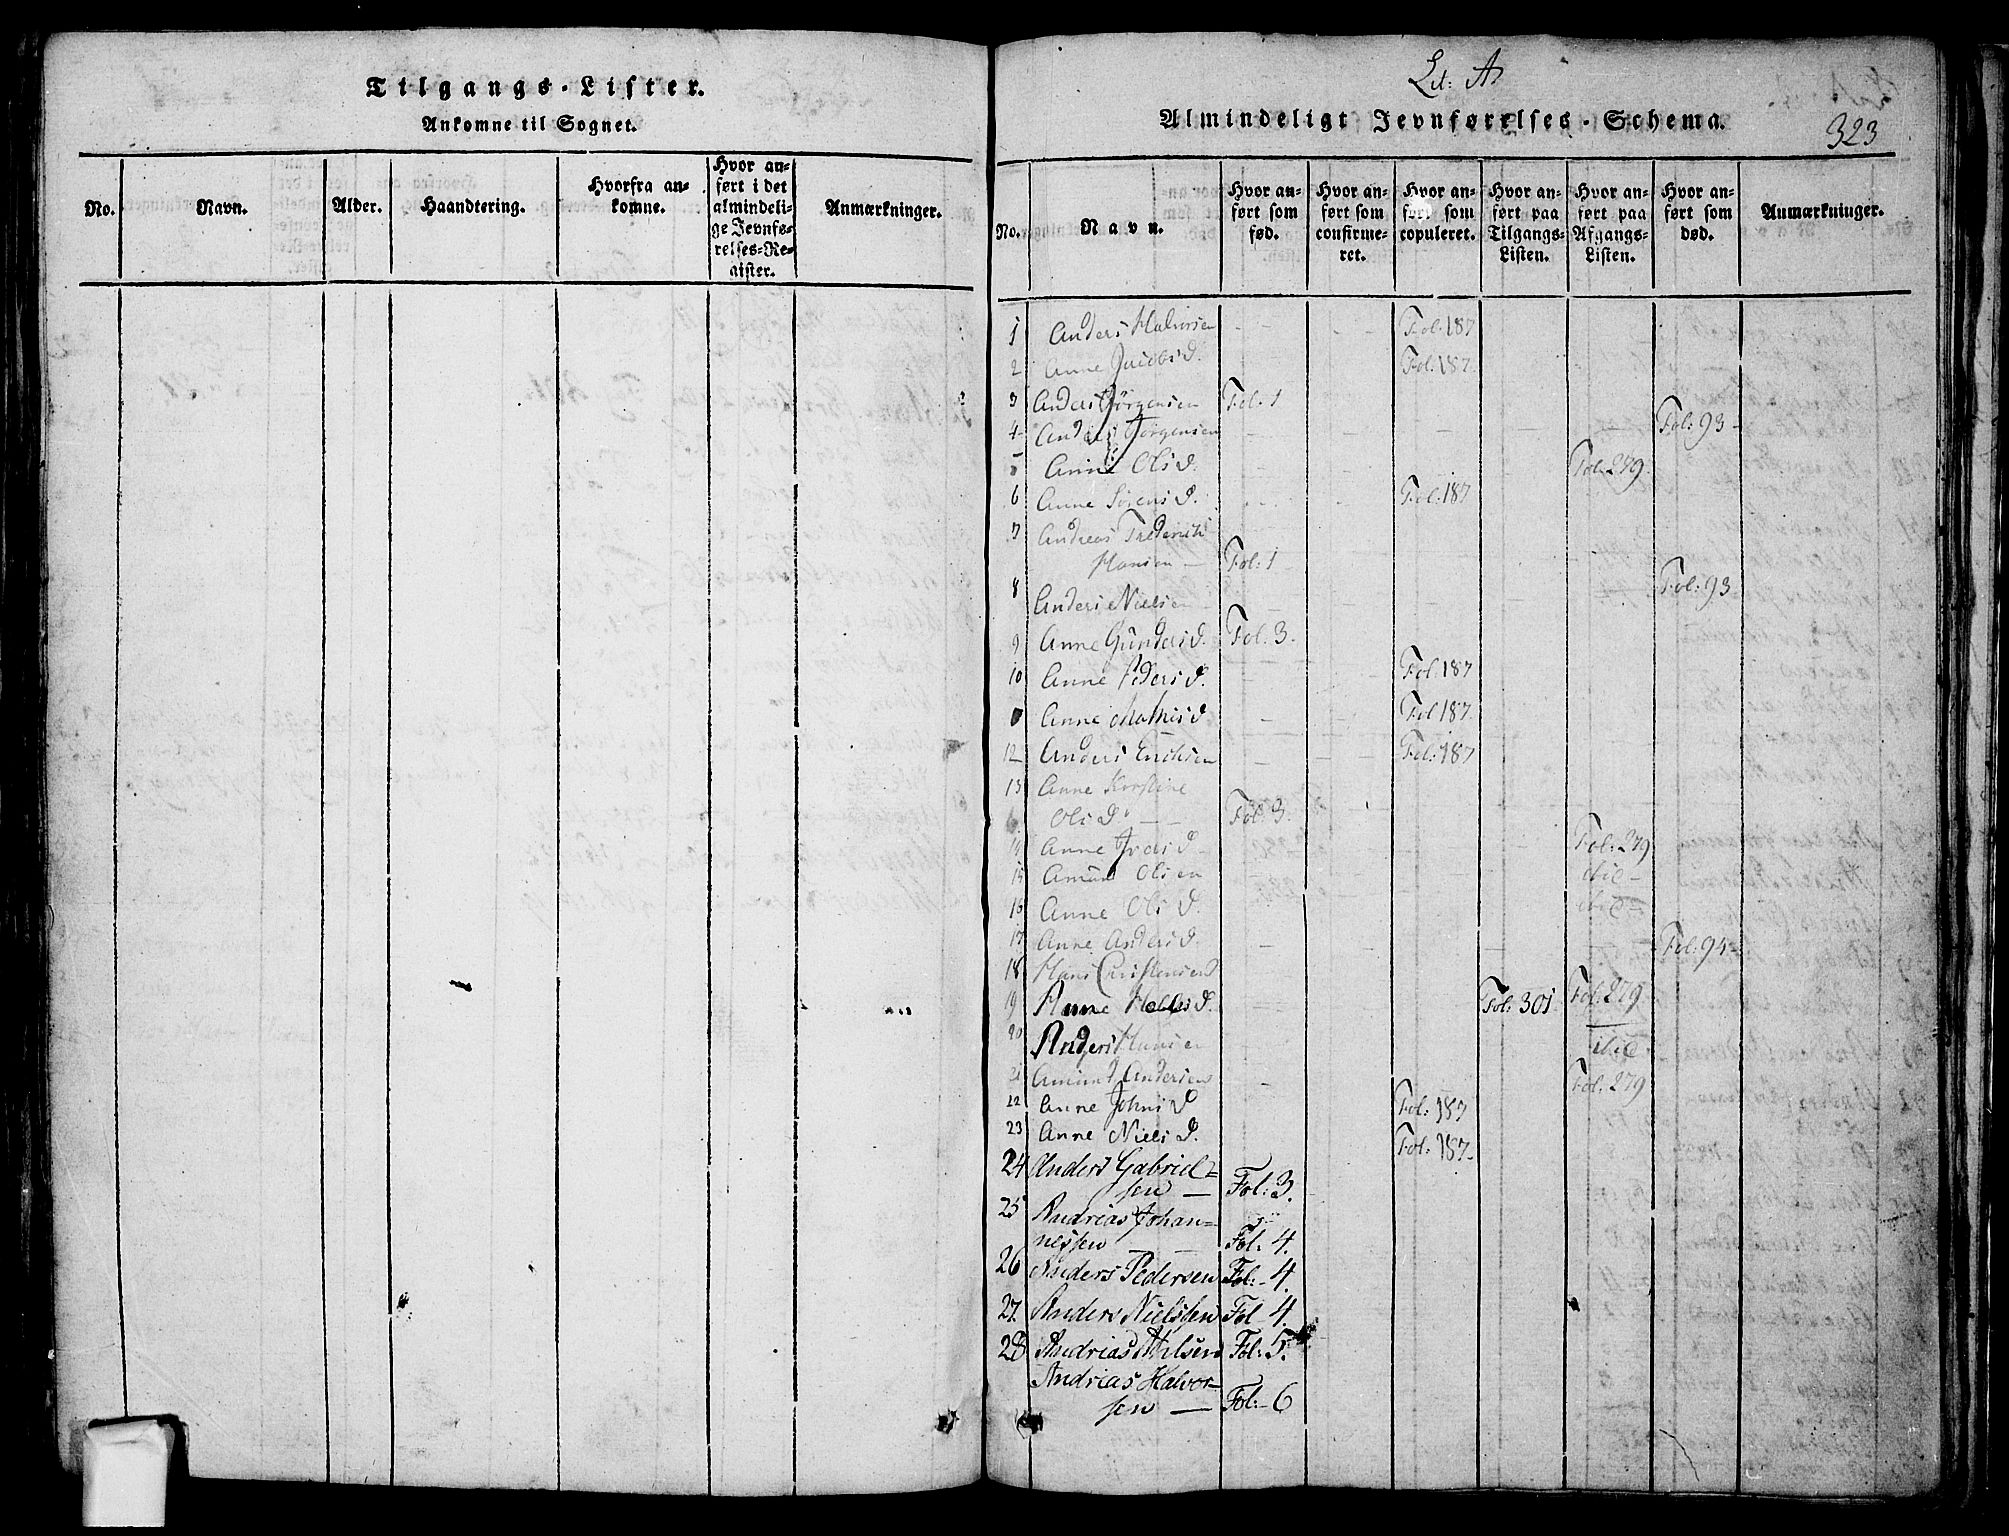 Tilgangs-Lister.
Ankomne til Sognet.
No.
Navn.
Alder.
Haandtering.
Hvorfra an-
komne.
Hvor an-
ført i det
almindeli-
ge Jevnfø-
relses-Re-
gister.
Anmærkninger.
Lit: A
Almindeligt Jevnførelses-Schema.
323
No.
Navn.
Hvor an-
ført som
fød.
Hvor an-
ført som
confirme-
ret.
Hvor an-
ført som
copuleret.
Hvor an-
ført paa
Tilgangs-
Listen.
Hvor an-
ført paa
Afgangs-
Listen.
Hvor an-
ført som
død.
Anmærkninger.
1 Anders Halvorsen Fol: 187
2 Anne Jacobsd. Fol: 187
3 Anders Jörgensen Fol: 1
4 Anders Jörgensen Fol: 93
5 Anne Olsd. Fol: 279
6 Anne Sörensd. Fol: 187
7 Andreas Frederich
Hansen Fol: 1
8 Anders Nielsen Fol: 93
9 Anne Gundersd. Fol: 3
10 Anne Pedersd. Fol 187
Anne Mathisd. Fol 187
12 Anders Erichsen Fol: 187
13 Anne Kirstine
Olsd. Fol: 3
14 Anne d. Fol: 279
15 Amun Olsen
16 Anne Olsd.
17 Anne Andersd. Fol: 94
18 Hans Christensen
19 Anne d. Fol: 301 Fol: 279
20 Anders Hansen
21 Amund Andersen Fol: 279
22 Anne Johnsd Fol: 187
23 Anne Nielsd. Fol: 187
24 Anders Gabriel=
sen Fol: 3.
25 Andrias Johan=
nessen Fol: 4.
26 Anders Pedersen Fol: 4.
27. Anders Nielssen Fol 4.
28 Andrias Nilsen Fol: 5.
Andrias Halvor=
sen Fol: 6